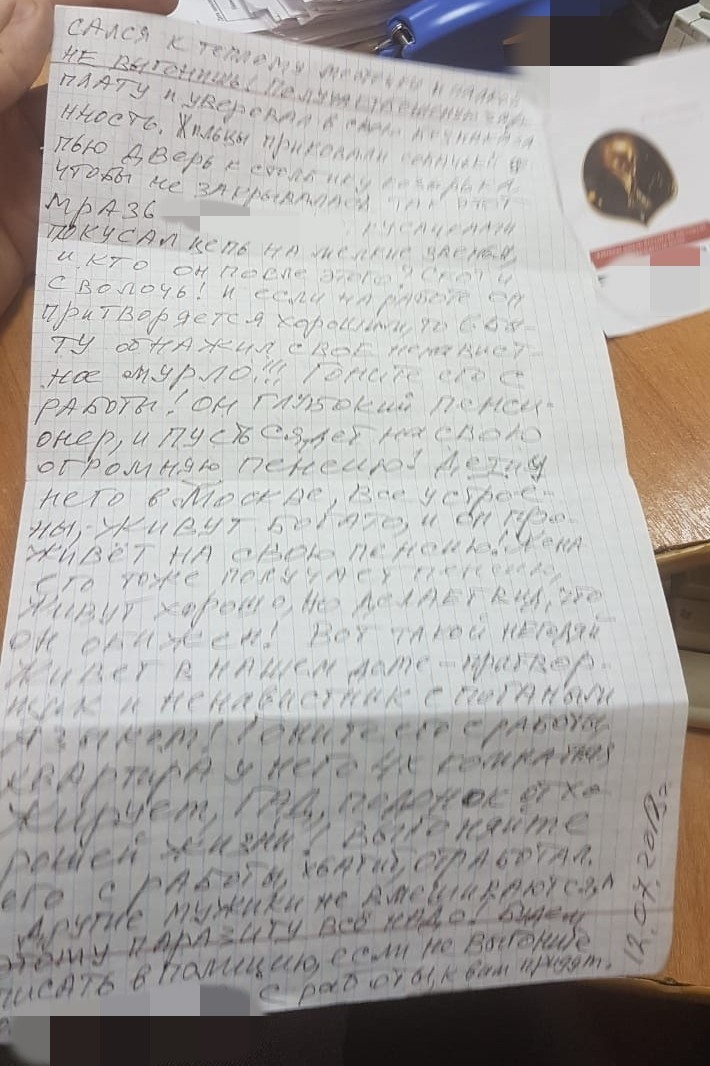 САЛСЯ К ТЕПЛОМУ МЕСТЕЧКУ И
НЕ ВЫГОНИШЬ! ПОЛУЧАЕТ
ПЛАТУ И УВЕРОВАЛ В СВОЮ БЕЗНАКАЗА
ННОСТЬ. ЖИЛЬЦЫ ПРИКОВАЛИ
ПЬЮ ДВЕРЬ К СТОЛБИКУ КОЗЫРЬКА
ЧТОБЫ НЕ ЗАКРЫВАЛАСЬ ТАК ЭТА
МРАЗЬ КУСАЧКАМИ
ПОКУСАЛ ЦЕПЬ НА МЕЛКИЕ
И КТО ОН ПОСЛЕ ЭТОГО? СКОТ И
СВОЛОЧЬ! И ЕСЛИ НА РАБОТЕ ОН
ПРИТВОРЯЕТСЯ ХОРОШИМ, ТО В БЫ-
ТУ ОБНАЖИЛ СВОЕ НЕНАВИСТ-
НОЕ МУРЛО!!! ГОНИТЕ ЕГО С
РАБОТЫ! ОН ГЛУБОКИЙ ПЕНСИ-
ОНЕР, И ПУСТЬ СЯДЕТ НА СВОЮ
ОГРОМНЯЮ ПЕНСИЮ! ДЕТИ У
НЕГО В МОСКВЕ, ВСЕ УСТРОЕ-
НЫ, ЖИВУТ БОГАТО, И ОН ПРО-
ЖИВЁТ НА СВОЮ ПЕНСИЮ! ЖЕНА
ЕГО ТОЖЕ ПОЛУЧАЕТ ПЕНСИЮ,
ЖИВУТ ХОРОШО, НО ДЕЛАЕТ ВИД, ЧТО
ОН ОБИЖЕН! ВОТ ТАКОЙ НЕГОДЯЙ
ЖИВЕТ В НАШЕМ ДОМЕ - ПРИТВОР-
ЩИК И НЕНАВИСТНИК С ПОГАНЫМ
ЯЗЫКОМ! ГОНИТЕ ЕГО С РАБОТЫ
КВАРТИРА У НЕГО 4Х КОМНАТНАЯ
ЖИРУЕТ, ГАД, ПОДОНОК ОТ ХО-
РОШЕЙ ЖИЗНИ! ВЫГОНЯЙТЕ
ЕГО С РАБОТЫ, ХВАТИТ, ОТРАБОТАЛ.
ДРУГИЕ МУЖИКИ НЕ ВМЕШИВАЮТСЯ, А
ЭТОМУ ПАРАЗИТУ ВСЁ НАДО! БУДЕМ
ПИСАТЬ В ПОЛИЦИЮ, ЕСЛИ НЕ ВЫГОНИТЕ
С РАБОТЫ, К ВАМ ПРИДЯТ.
12.07.2018г.